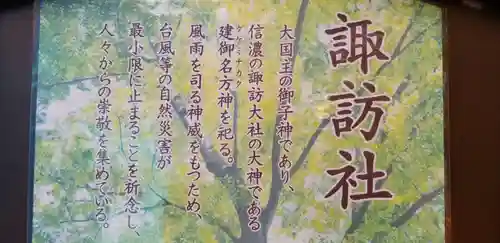 諏訪社
大国主の御子神であり、
信濃の諏訪大社の大神である
タケミナカタ
建御名方神を祀る。
風雨を司る神威をもつため、
台風等の自然災害が
最小限に止まることを祈念し、
人々からの崇敬を集めている。